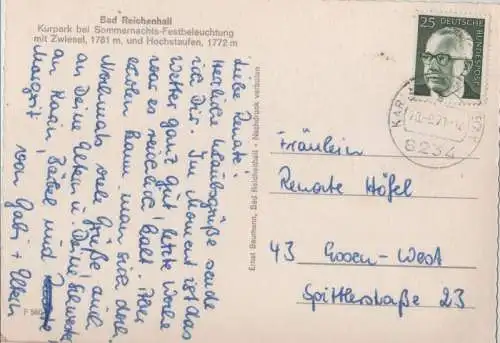 Bad Reichenhall
Kurpark bei Sommernachts-Festbeleuchtung
mit Zwiesel, 1781 m, und Hochstaufen, 1772 m
Liebe Renate!
Herzliche Urlaubsgrüße sende
ich Dir. Im Moment ist das
Wetter ganz gut, letzte Woche
war es reichlich kalt. Aber
erholen kann man sich doch.
Nochmals viele Grüße, auch
an Deine Eltern u. Deine Schwester
an Karin, Bärbel und
Margrit von Gabi + Eltern
Ernst Baumann, Bad Reichenhall - Nachdruck verboten
25 DEUTSCHE BUNDESPOST
8234
Fräulein
Renate Höfel
43 Essen-West
Spittlerstraße 23